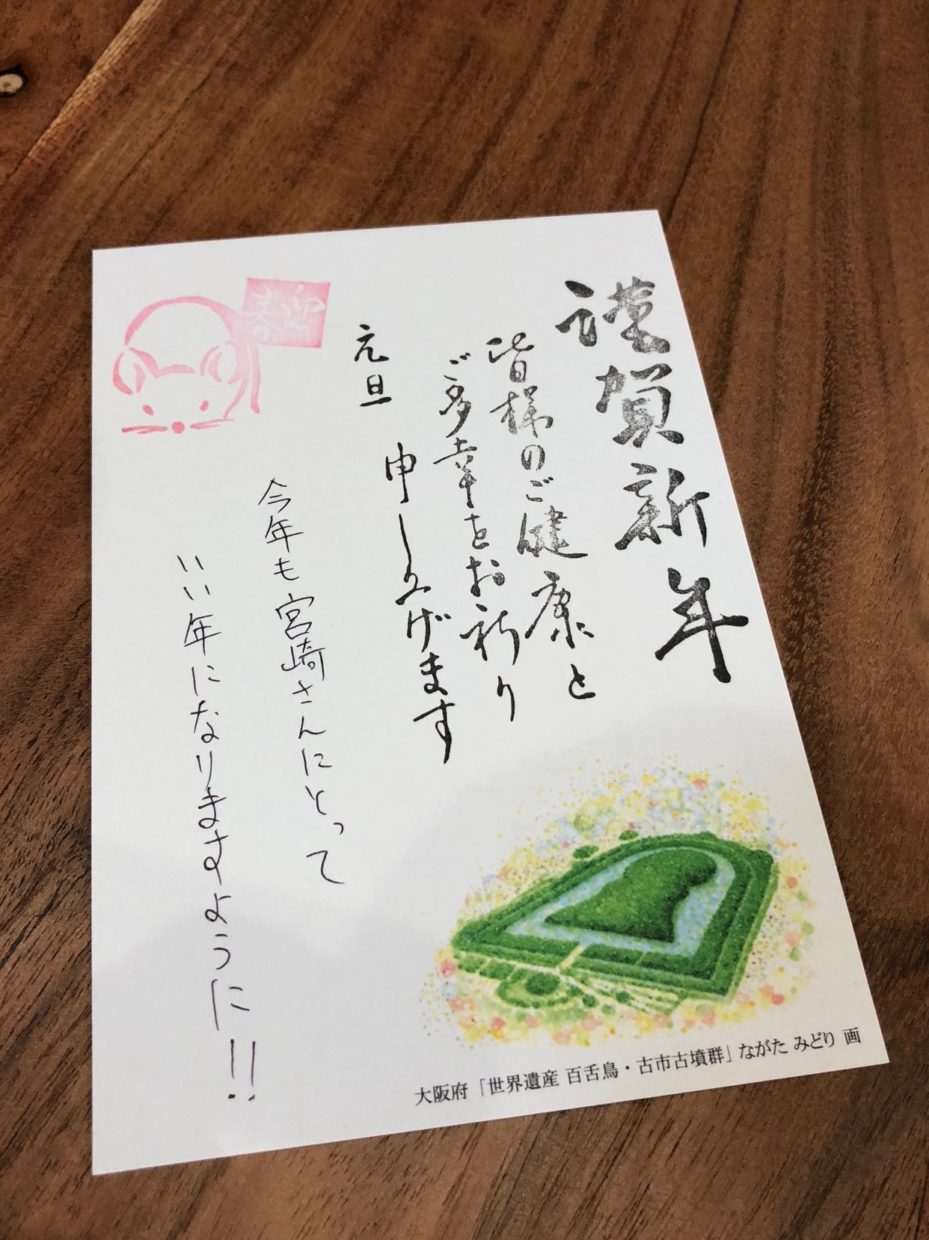 謹賀新年
皆様のご健康と
ご多幸をお祈り
申し上げます
元旦
迎春
今年も宮崎さんにとって
いい年になりますように!!
大阪府「世界遺産 百舌鳥・古市古墳群」ながた みどり 画